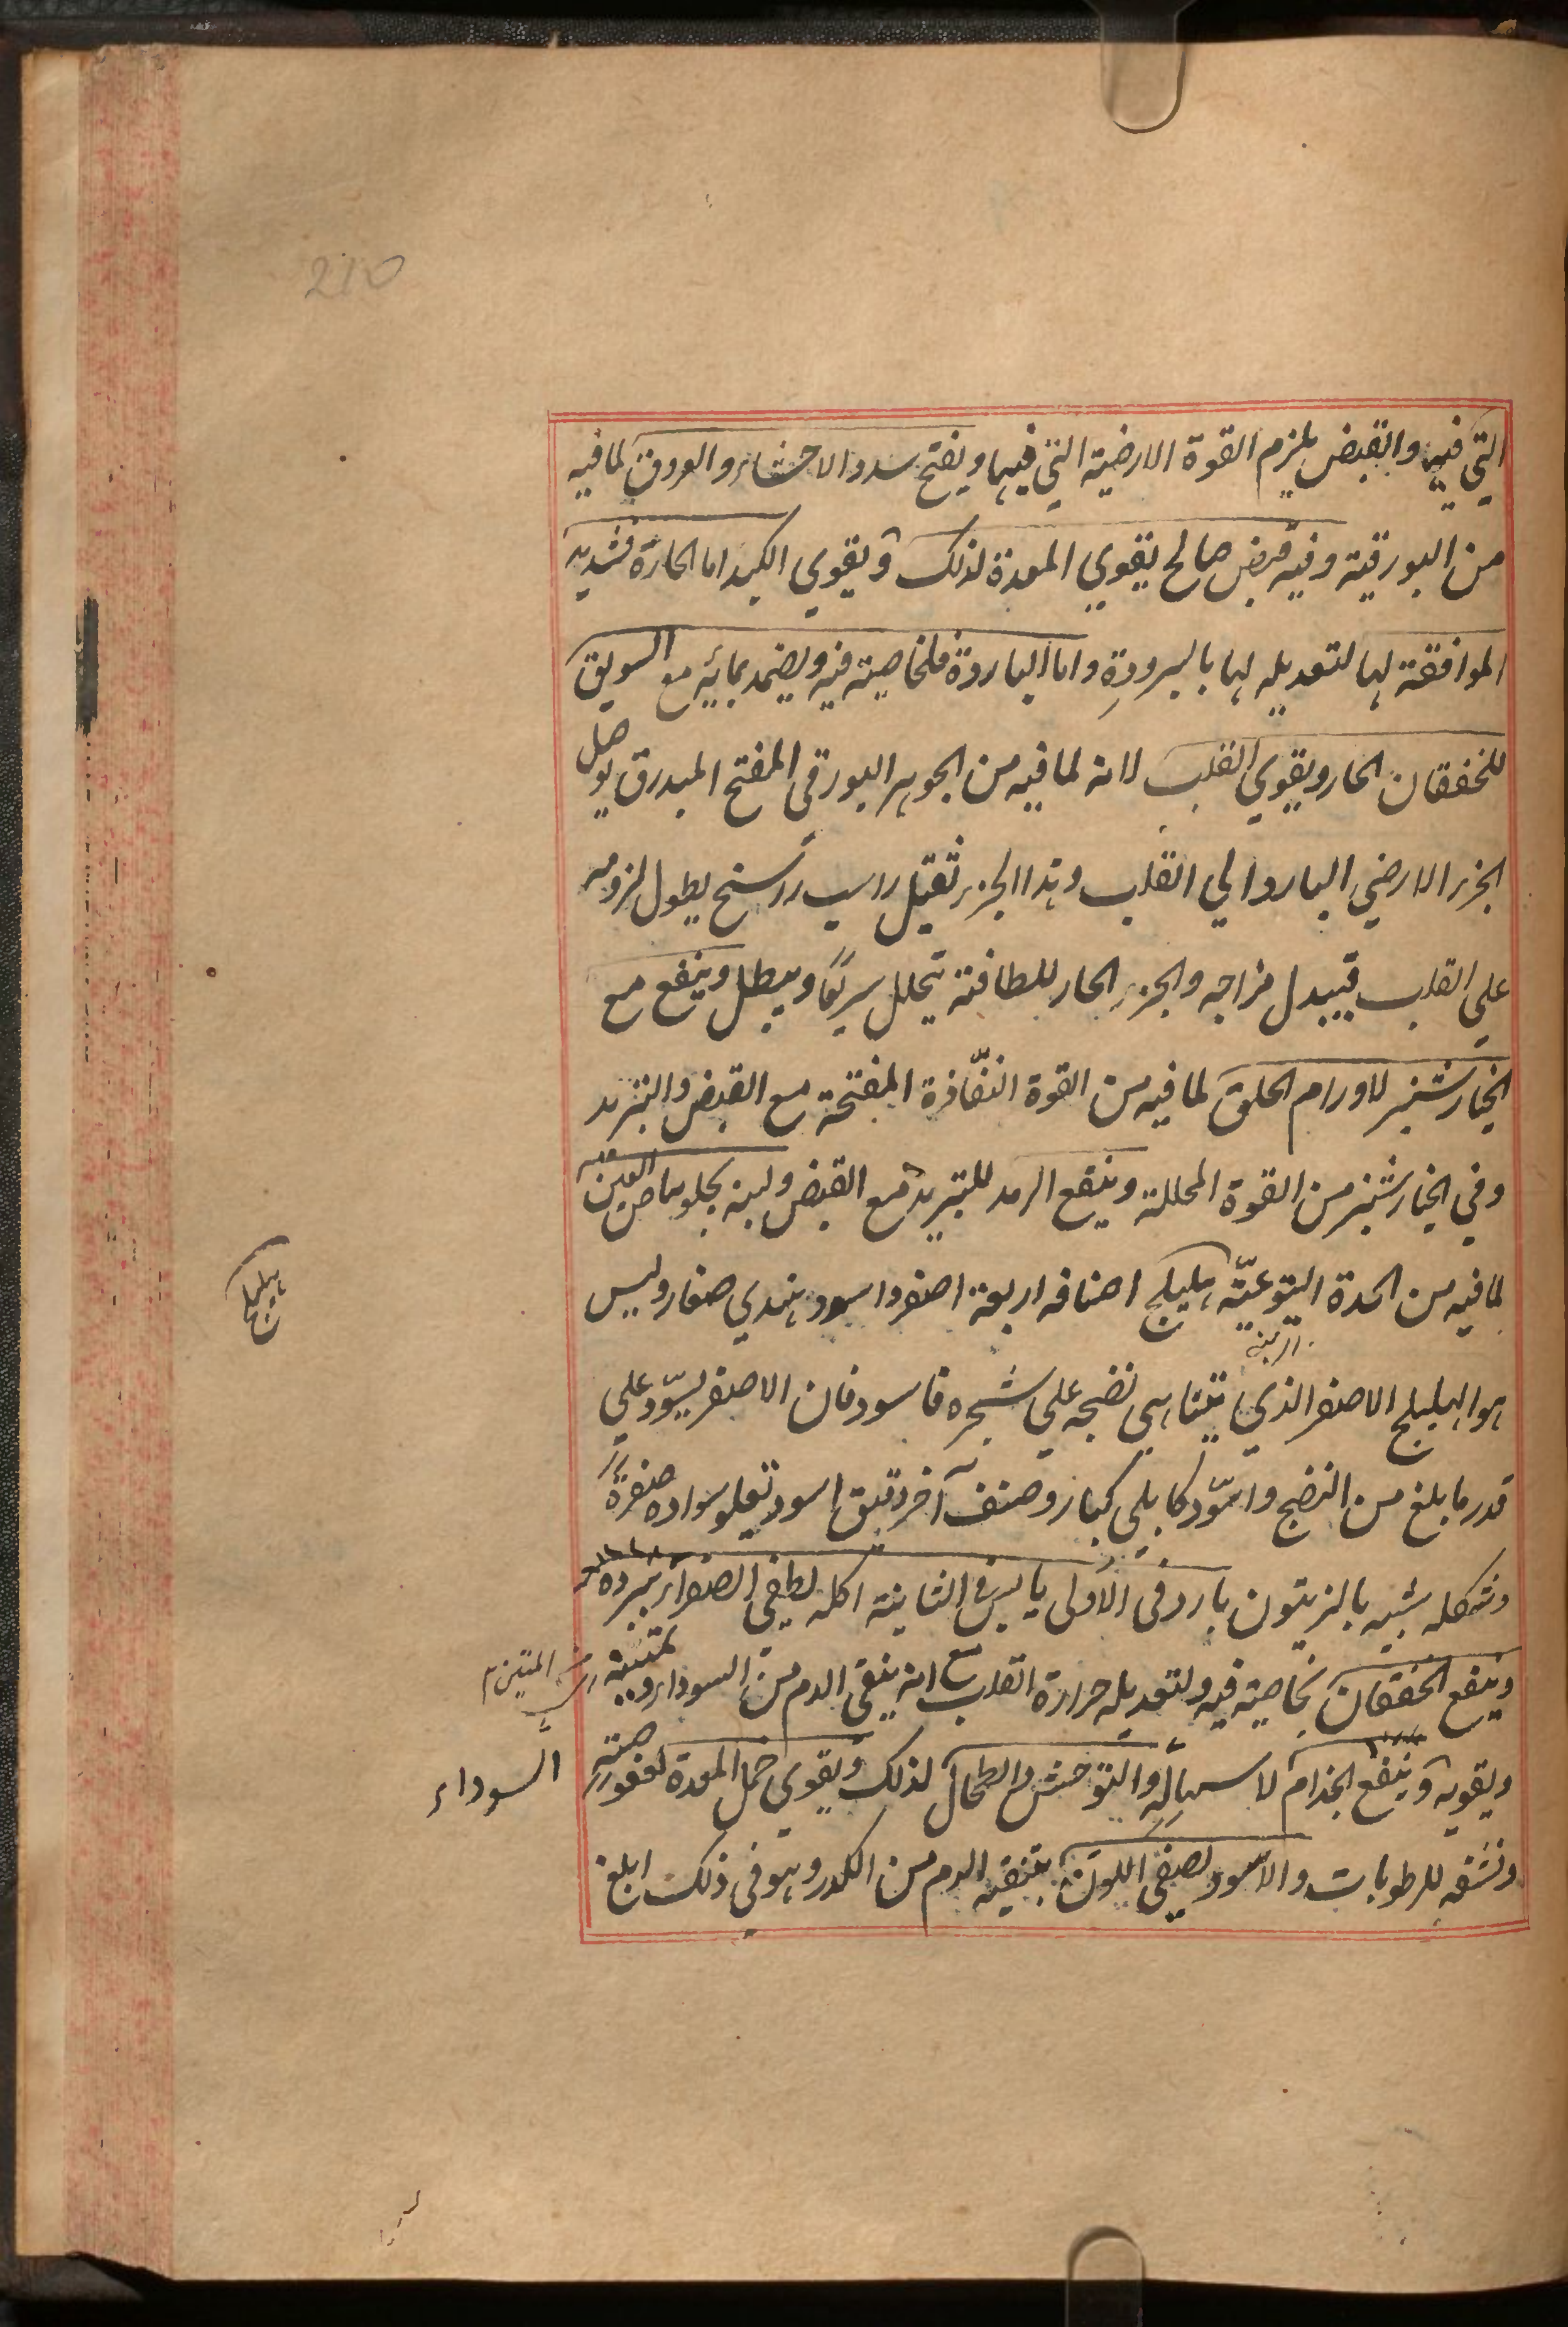 210
التي فيها والقبض يلزم القوة الارضية التي فيها ويفتح سدد الاحشاء والعروق لما فيه
من البورقية وفيه قبض صالح يقوي المعدة لذلك ويقوي الكبد اما الحارة فشديد
الموافقة لها لتعديله لها بالبرودة واما الباردة فلخاصيته فيه ويضمد بمائه مع السويق
للخفقان الحار ويقوي القلب لانه لما فيه من الجوهر البورقي المفتح المبدرق يوصل
الجزء الارضي البارد الي القلب وهذا الجزء ثقيل راسب راسخ يطول لزومه
علي القلب فيبدل مزاجه والجزء الحار للطافته يتحلل سريعا ويبطل وينفع مع
الخيارشنبر لاورام الحلق لما فيه من القوة النفاذة المفتحة مع القبض والتبريد
وفي الخيارشنبر من القوة المحللة وينفع الرمد للتبريد مع القبض ولبنه يجلو بياض العين
لما فيه من الحدة اليتوعية هليلج اصنافه اربعة اصفر واسود هندي صغار وليس
هليلج
هو الهليلج الاصفر الذي يتناهي نضجه علي شجره فاسود فان الاصفر يسود علي
قدر ما بلغ من النضج واسود كابلي كبار وصنف آخر دقيق اسود تعلو سواده صفرة
وشكله شبيه بالزيتون بارد في الاولى يابس في الثانية اكله يطفي الصفراء ببرده
وينفع الخفقان بخاصية فيه ولتعديله حرارة القلب مع انه ينقي الدم من السوداء
ويقويه وينفع الجذام لاسهاله والتوحش والطحال لذلك ويقوي خمل المعدة لعفوصته
السوداء
ونشفه للرطوبات والاسود يصفي اللون بتنقيه الدم من الكدر وهو في ذلك ابلغ